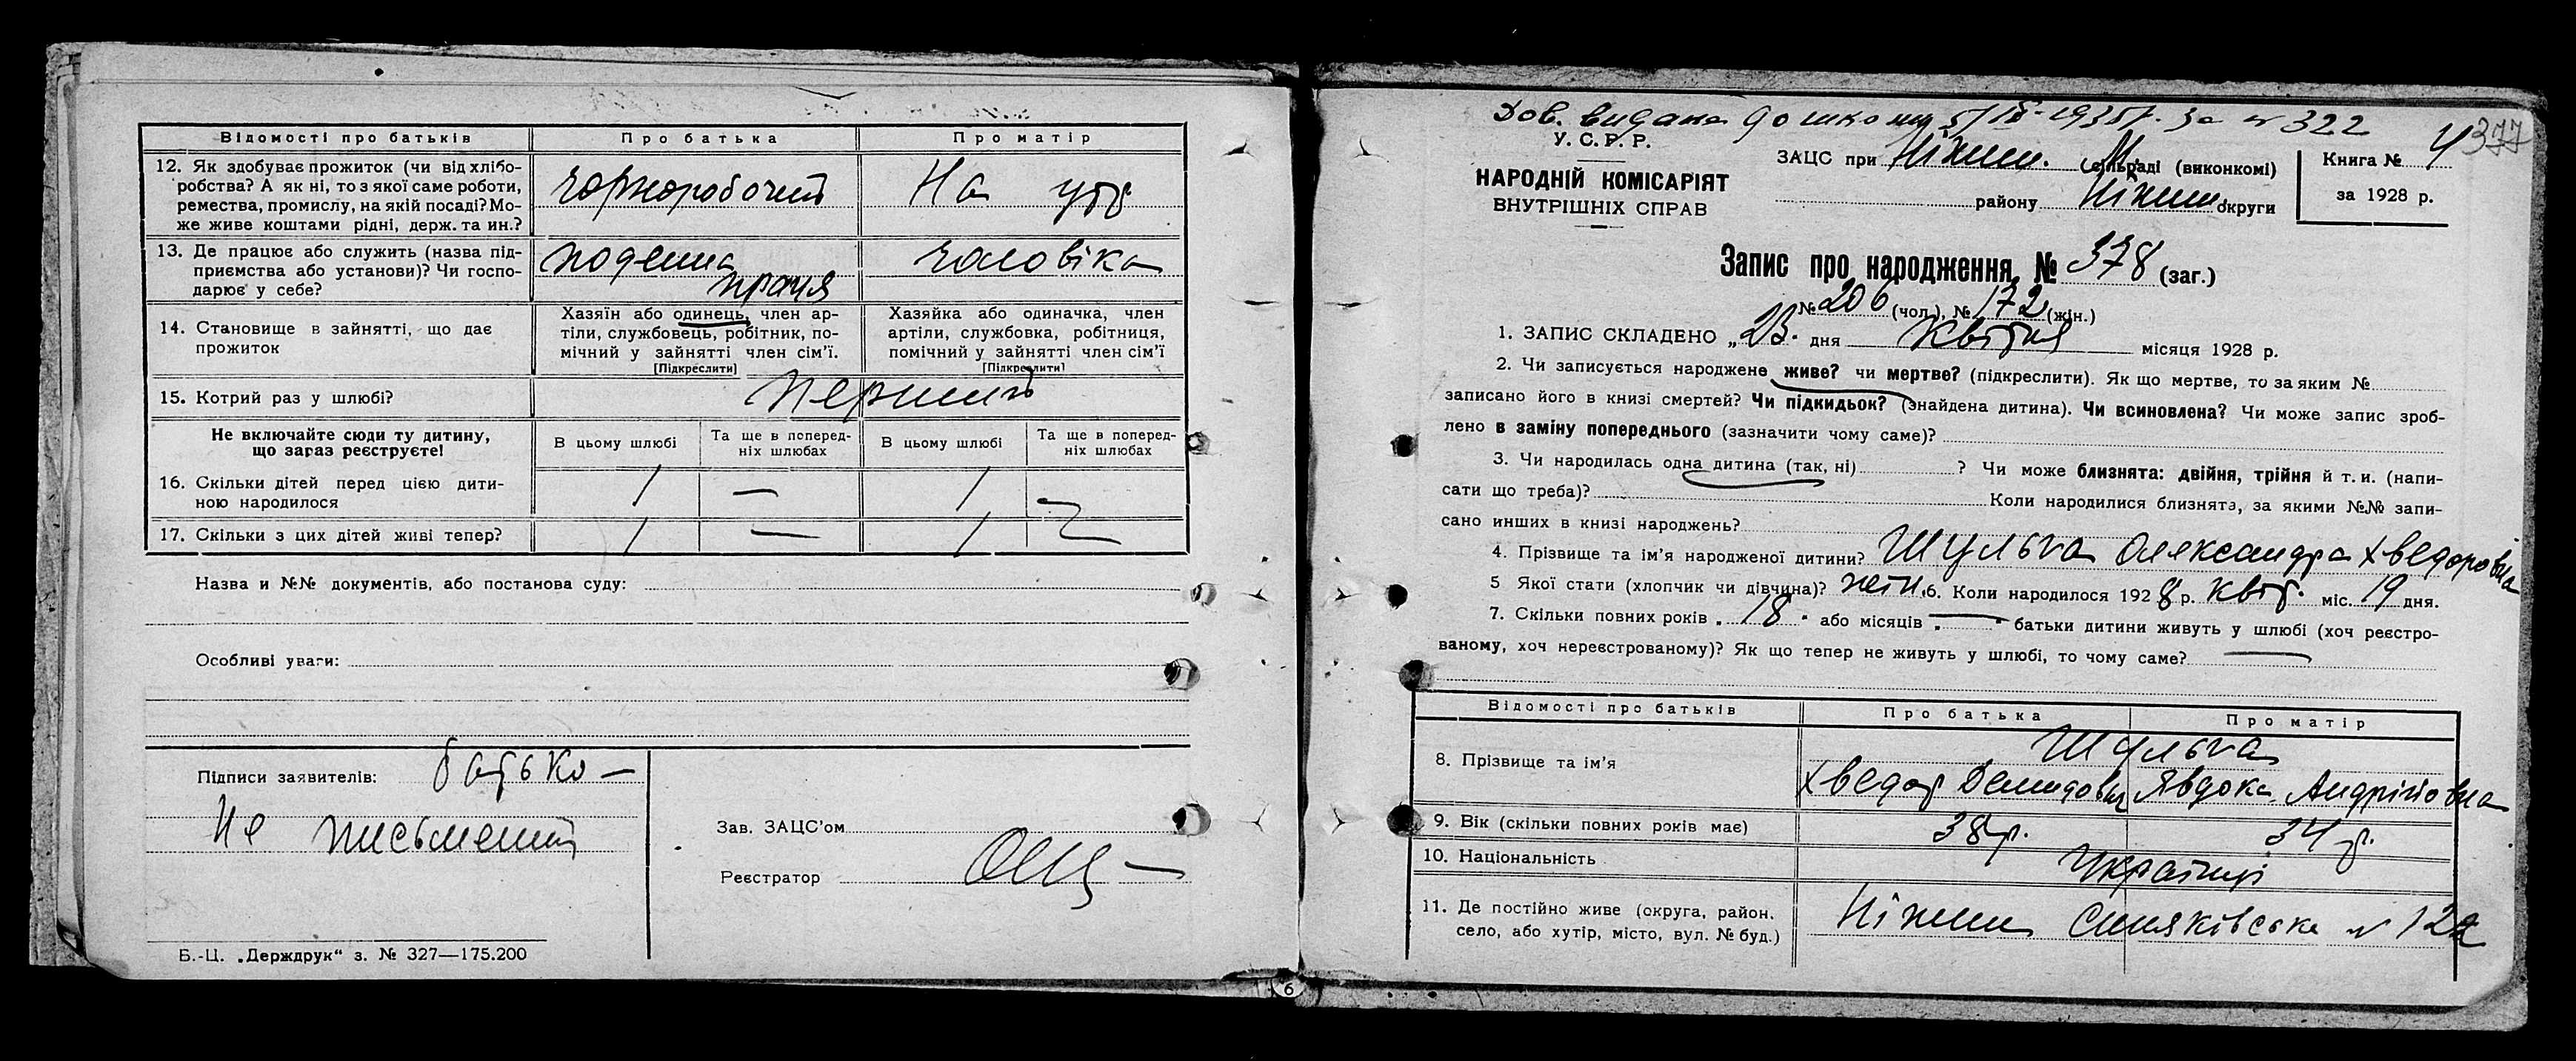 Відомості про батьків Про батька Про матір
12. Як здобуває прожиток (чи від хлібо-
робства? А як ні, то з якої саме роботи,
ремества, промислу, на якій посаді? Мо-
же живе коштами рідні, держ. та ин.?
чорноробочий На утр
13. Де працює або служить (назва під-
приємства або установи)? Чи госпо-
дарює у себе?
поденна праця чоловіка
14. Становище в зайнятті, що дає
прожиток
Хазяїн або одинець, член ар-
тіли, службовець, робітник, по-
мічний у зайнятті член сім'ї.
[Підкреслити]
Хазяйка або одиначка, член
артіли, службовка, робітниця,
помічний у зайнятті член сім'ї
[Підкреслити]
15. Котрий раз у шлюбі? перший
Не включайте сюди ту дитину,
що зараз реєструєте!
В цьому шлюбі Та ще в поперед-
ніх шлюбах В цьому шлюбі Та ще в поперед-
ніх шлюбах
16. Скільки дітей перед цією дити-
ною народилося 1 — 1 —
17. Скільки з цих дітей живі тепер? 1 — 1 —
Назва и №№ документів, або постанова суду:
Особливі уваги:
Підписи заявителів: батько —
Не письменний
Зав. ЗАЦС'ом
Реєстратор
Б.-Ц. „Держдрук“ з. № 327—175.200
6
Дов. видана до школи 5/IX-1935р. за № 322
377
У. С. Р. Р.
НАРОДНІЙ КОМІСАРІЯТ
ВНУТРІШНІХ СПРАВ
ЗАЦС при Ніжин. М. (сільраді (виконкомі)
району Ніжин округи
Книга № 4
за 1928 р.
Запис про народження № 378 (заг.)
№ 206 (чол.), № 172 (жін.)
1. ЗАПИС СКЛАДЕНО „23" дня Квітня місяця 1928 р.
2. Чи записується народжене живе? чи мертве? (підкреслити). Як що мертве, то за яким №
записано його в книзі смертей? Чи підкидьок? (знайдена дитина). Чи всиновлена? Чи може запис зроб-
лено в заміну попереднього (зазначити чому саме)?
3. Чи народилась одна дитина (так, ні) ? Чи може близнята: двійня, трійня й т. и. (напи-
сати що треба)? Коли народилися близнята, за якими №№ запи-
сано инших в книзі народжень?
4. Прізвище та ім'я народженої дитини? Шульга Олександра Хведоровна
5 Якої стати (хлопчик чи дівчина)? жін. 6. Коли народилося 1928 р. квіт. міс. 19 дня.
7. Скільки повних років „18" або місяців „—" батьки дитини живуть у шлюбі (хоч реєстро-
ваному, хоч нереєстрованому)? Як що тепер не живуть у шлюбі, то чому саме? —
Відомості про батьків Про батька Про матір
8. Прізвище та ім'я Шульга
Хведор Демидович Явдоха Андріївна
9. Вік (скільки повних років має) 38 р. 34 р.
10. Національність Українці
11. Де постійно живе (округа, район,
село, або хутір, місто, вул. № буд.)
Ніжин Синяківська № 122